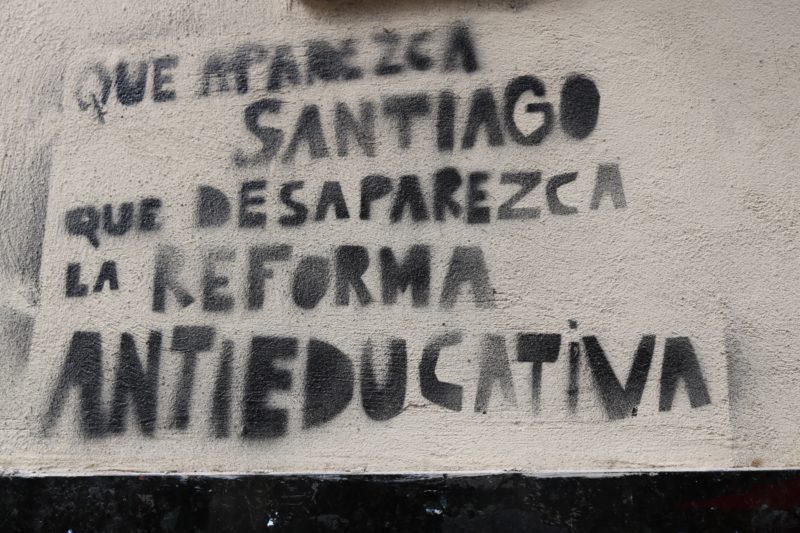 QUE APAREZCA
SANTIAGO
QUE DESAPAREZCA
LA REFORMA
ANTIEDUCATIVA